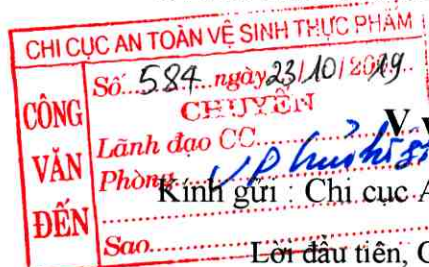 CHI CỤC AN TOÀN VỆ SINH THỰC PHẨM
CÔNG VĂN ĐẾN
Số 584 ngày 23/10/2019
CHUYỂN
Lãnh đạo CC
V
Phòng VP
Kính gửi : Chi cục A
Sao
Lời đầu tiên, C